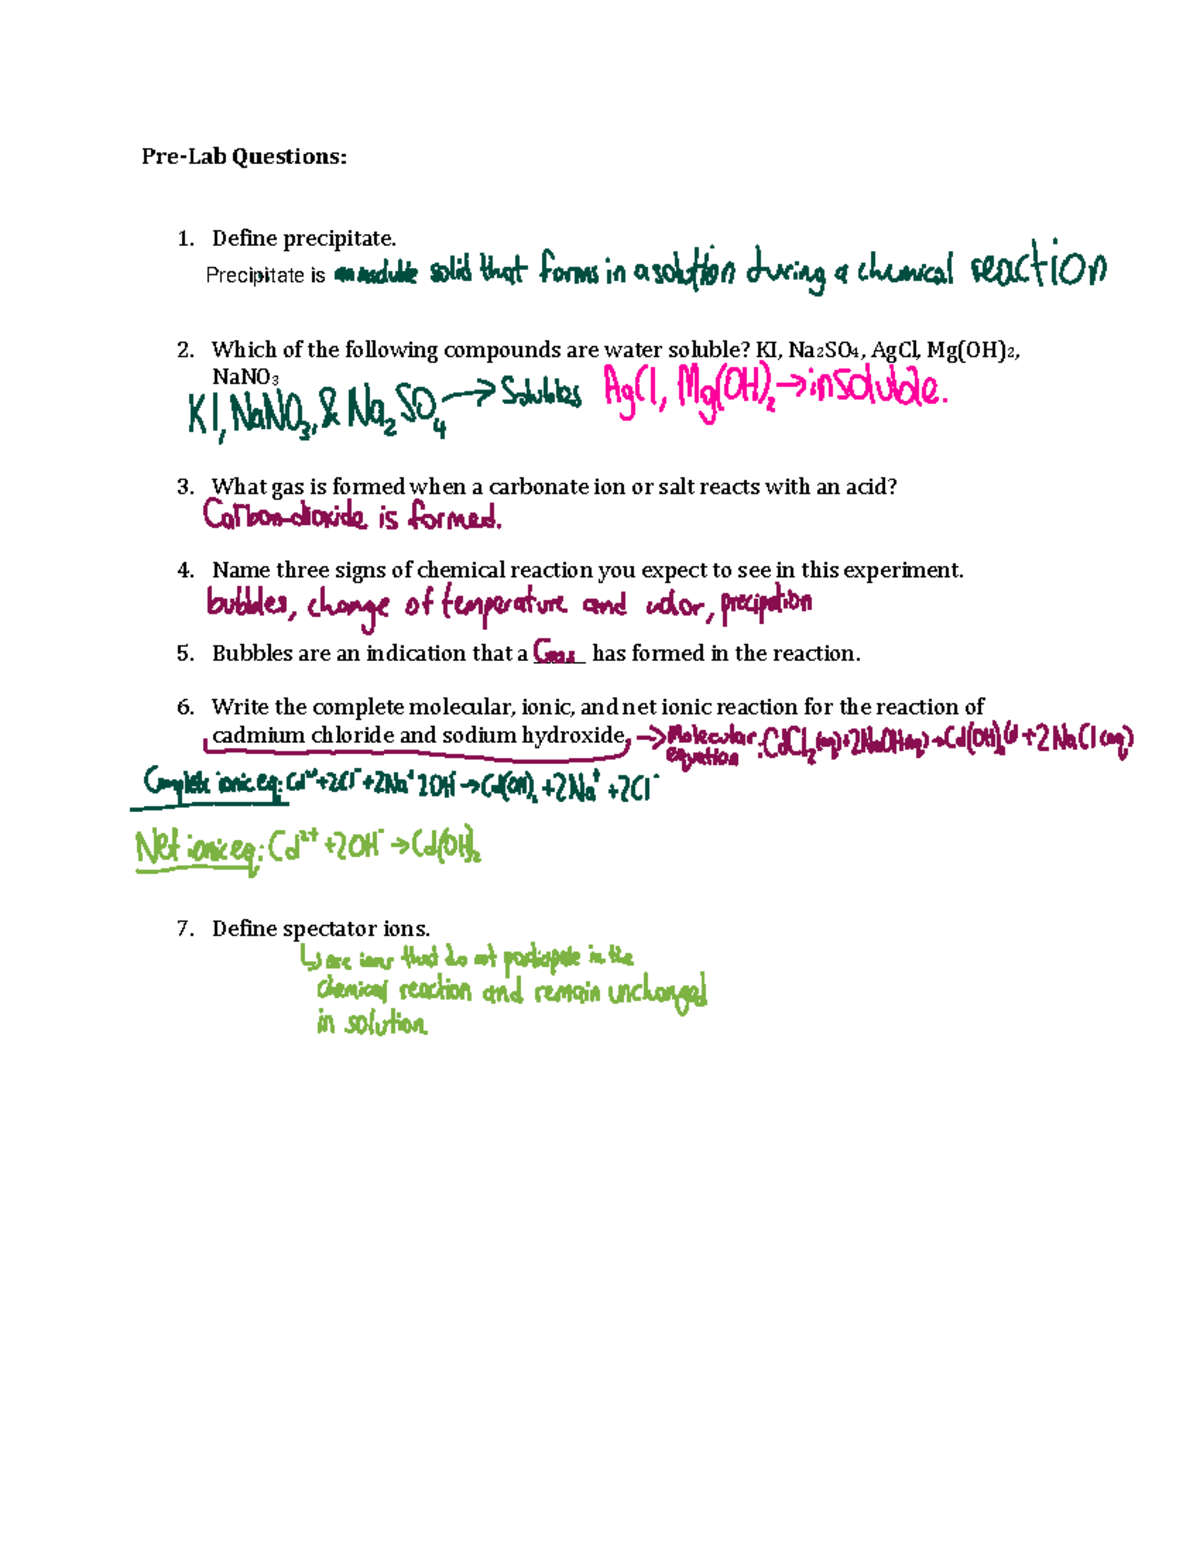 Pre-Lab Questions:
1. Define precipitate.
Precipitate is an insoluble solid that forms in a solution during a chemical reaction
2. Which of the following compounds are water soluble? KI, Na₂SO₄, AgCl, Mg(OH)₂,
NaNO₃
KI, NaNO₃, & Na₂SO₄ → Solubles AgCl, Mg(OH)₂ → insoluble.
3. What gas is formed when a carbonate ion or salt reacts with an acid?
Carbon-dioxide is formed.
4. Name three signs of chemical reaction you expect to see in this experiment.
bubbles, change of temperature and odor, precipation
5. Bubbles are an indication that a Gas has formed in the reaction.
6. Write the complete molecular, ionic, and net ionic reaction for the reaction of
cadmium chloride and sodium hydroxide. → Molecular equation: CdCl₂(aq)+2NaOH(aq)→Cd(OH)₂(s)+2NaCl(aq)
Complete ionic eq: Cd²⁺+2Cl⁻+2Na⁺ 2OH⁻→Cd(OH)₂+2Na⁺+2Cl⁻
Net ionic eq: Cd²⁺+2OH⁻→Cd(OH)₂
7. Define spectator ions.
↳ are ions that do not participate in the
chemical reaction and remain unchanged
in solution.